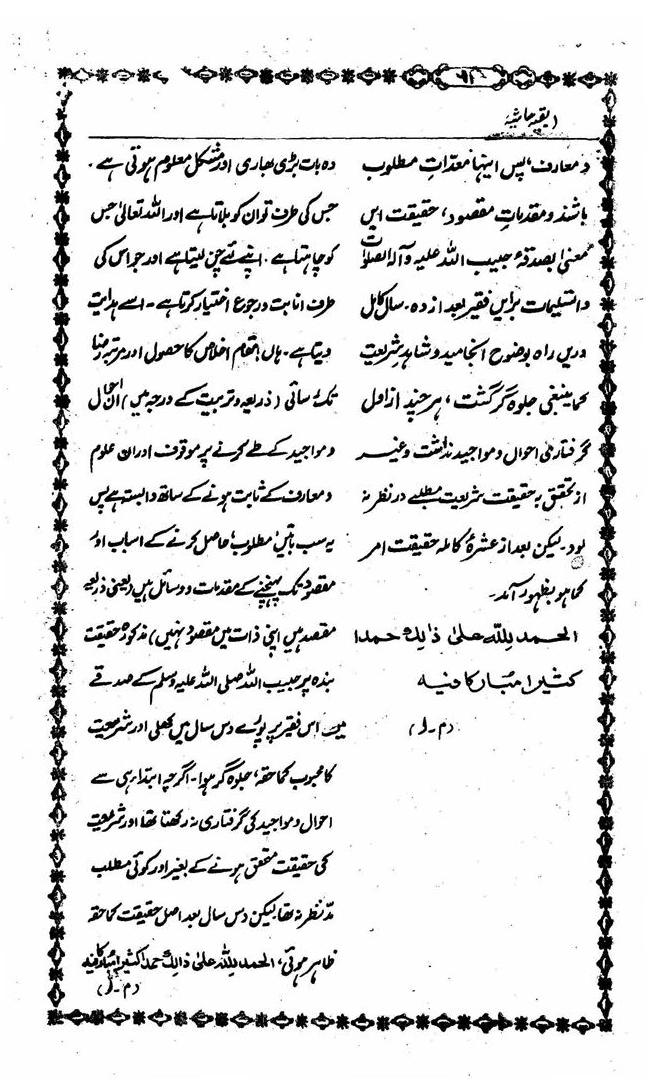 ۶۲
(بقیہ حاشیہ)
و معارف، پس اینہا معدّاتِ مطلوب
باشند و مقدماتِ مقصود، حقیقت ایں
معنی بصدقہء حبیب اللہ علیہ و آلہ الصلوات
و التسلیمات برایں فقیر بعد از دہ سال کامل
دریں راہ بوضوح انجامید و شاہد شریعت
کما ینبغی جلوہ گر گشت، ہر چند از اول
گرفتاری احوال و مواجید نداشت و غیر
از تحقق بہ حقیقت شریعت مطلبے در نظر نہ
بود۔ لیکن بعد از عشرۂ کاملہ حقیقت امر
کما ہو بظہور آمد۔
الحمد للّٰہ علیٰ ذالک حمدا
کثیرا مبارکا فیہ
(م۔ ل)
وہ بات بڑی بھاری اور مشکل معلوم ہوتی ہے۔
جس کی طرف تو ان کو بلاتا ہے اور اللہ تعالیٰ جس
کو چاہتا ہے۔ اپنے لئے چن لیتا ہے اور جو اس کی
طرف انابت و رجوع اختیار کرتا ہے۔ اسے ہدایت
دیتا ہے۔ ہاں! مقام اخلاص کا حصول اور مرتبہ رضا
تک رسائی (ذریعہ و تربیت کے درجہ میں) ان احوال
و مواجید کے طے کرنے پر موقوف اور ان علوم
و معارف کے ثابت ہونے کے ساتھ وابستہ ہے پس
یہ سب باتیں مطلوب حاصل کرنے کے اسباب اور
مقصود تک پہنچنے کے مقدمات و وسائل ہیں (یعنی ذریعہ
مقصد ہیں اپنی ذات میں مقصود نہیں) مذکورہ حقیقت
بندہ پر حبیب اللہ صلی اللہ علیہ وسلم کے صدقے
میں اس فقیر پر پورے دس سال میں کھلی اور شریعت
کا محبوب کما حقہ، جلوہ گر ہوا۔ اگرچہ ابتدا ہی سے
احوال و مواجید کی گرفتاری نہ رکھتا تھا اور شریعت
کی حقیقت متحقق ہونے کے بغیر اور کوئی مطلب
مدّ نظر نہ تھا لیکن دس سال بعد اصل حقیقت کما حقہ
ظاہر ہوئی، الحمد للّٰہ علیٰ ذالک حمدا کثیرا مبارکا فیہ
(م۔ ل)